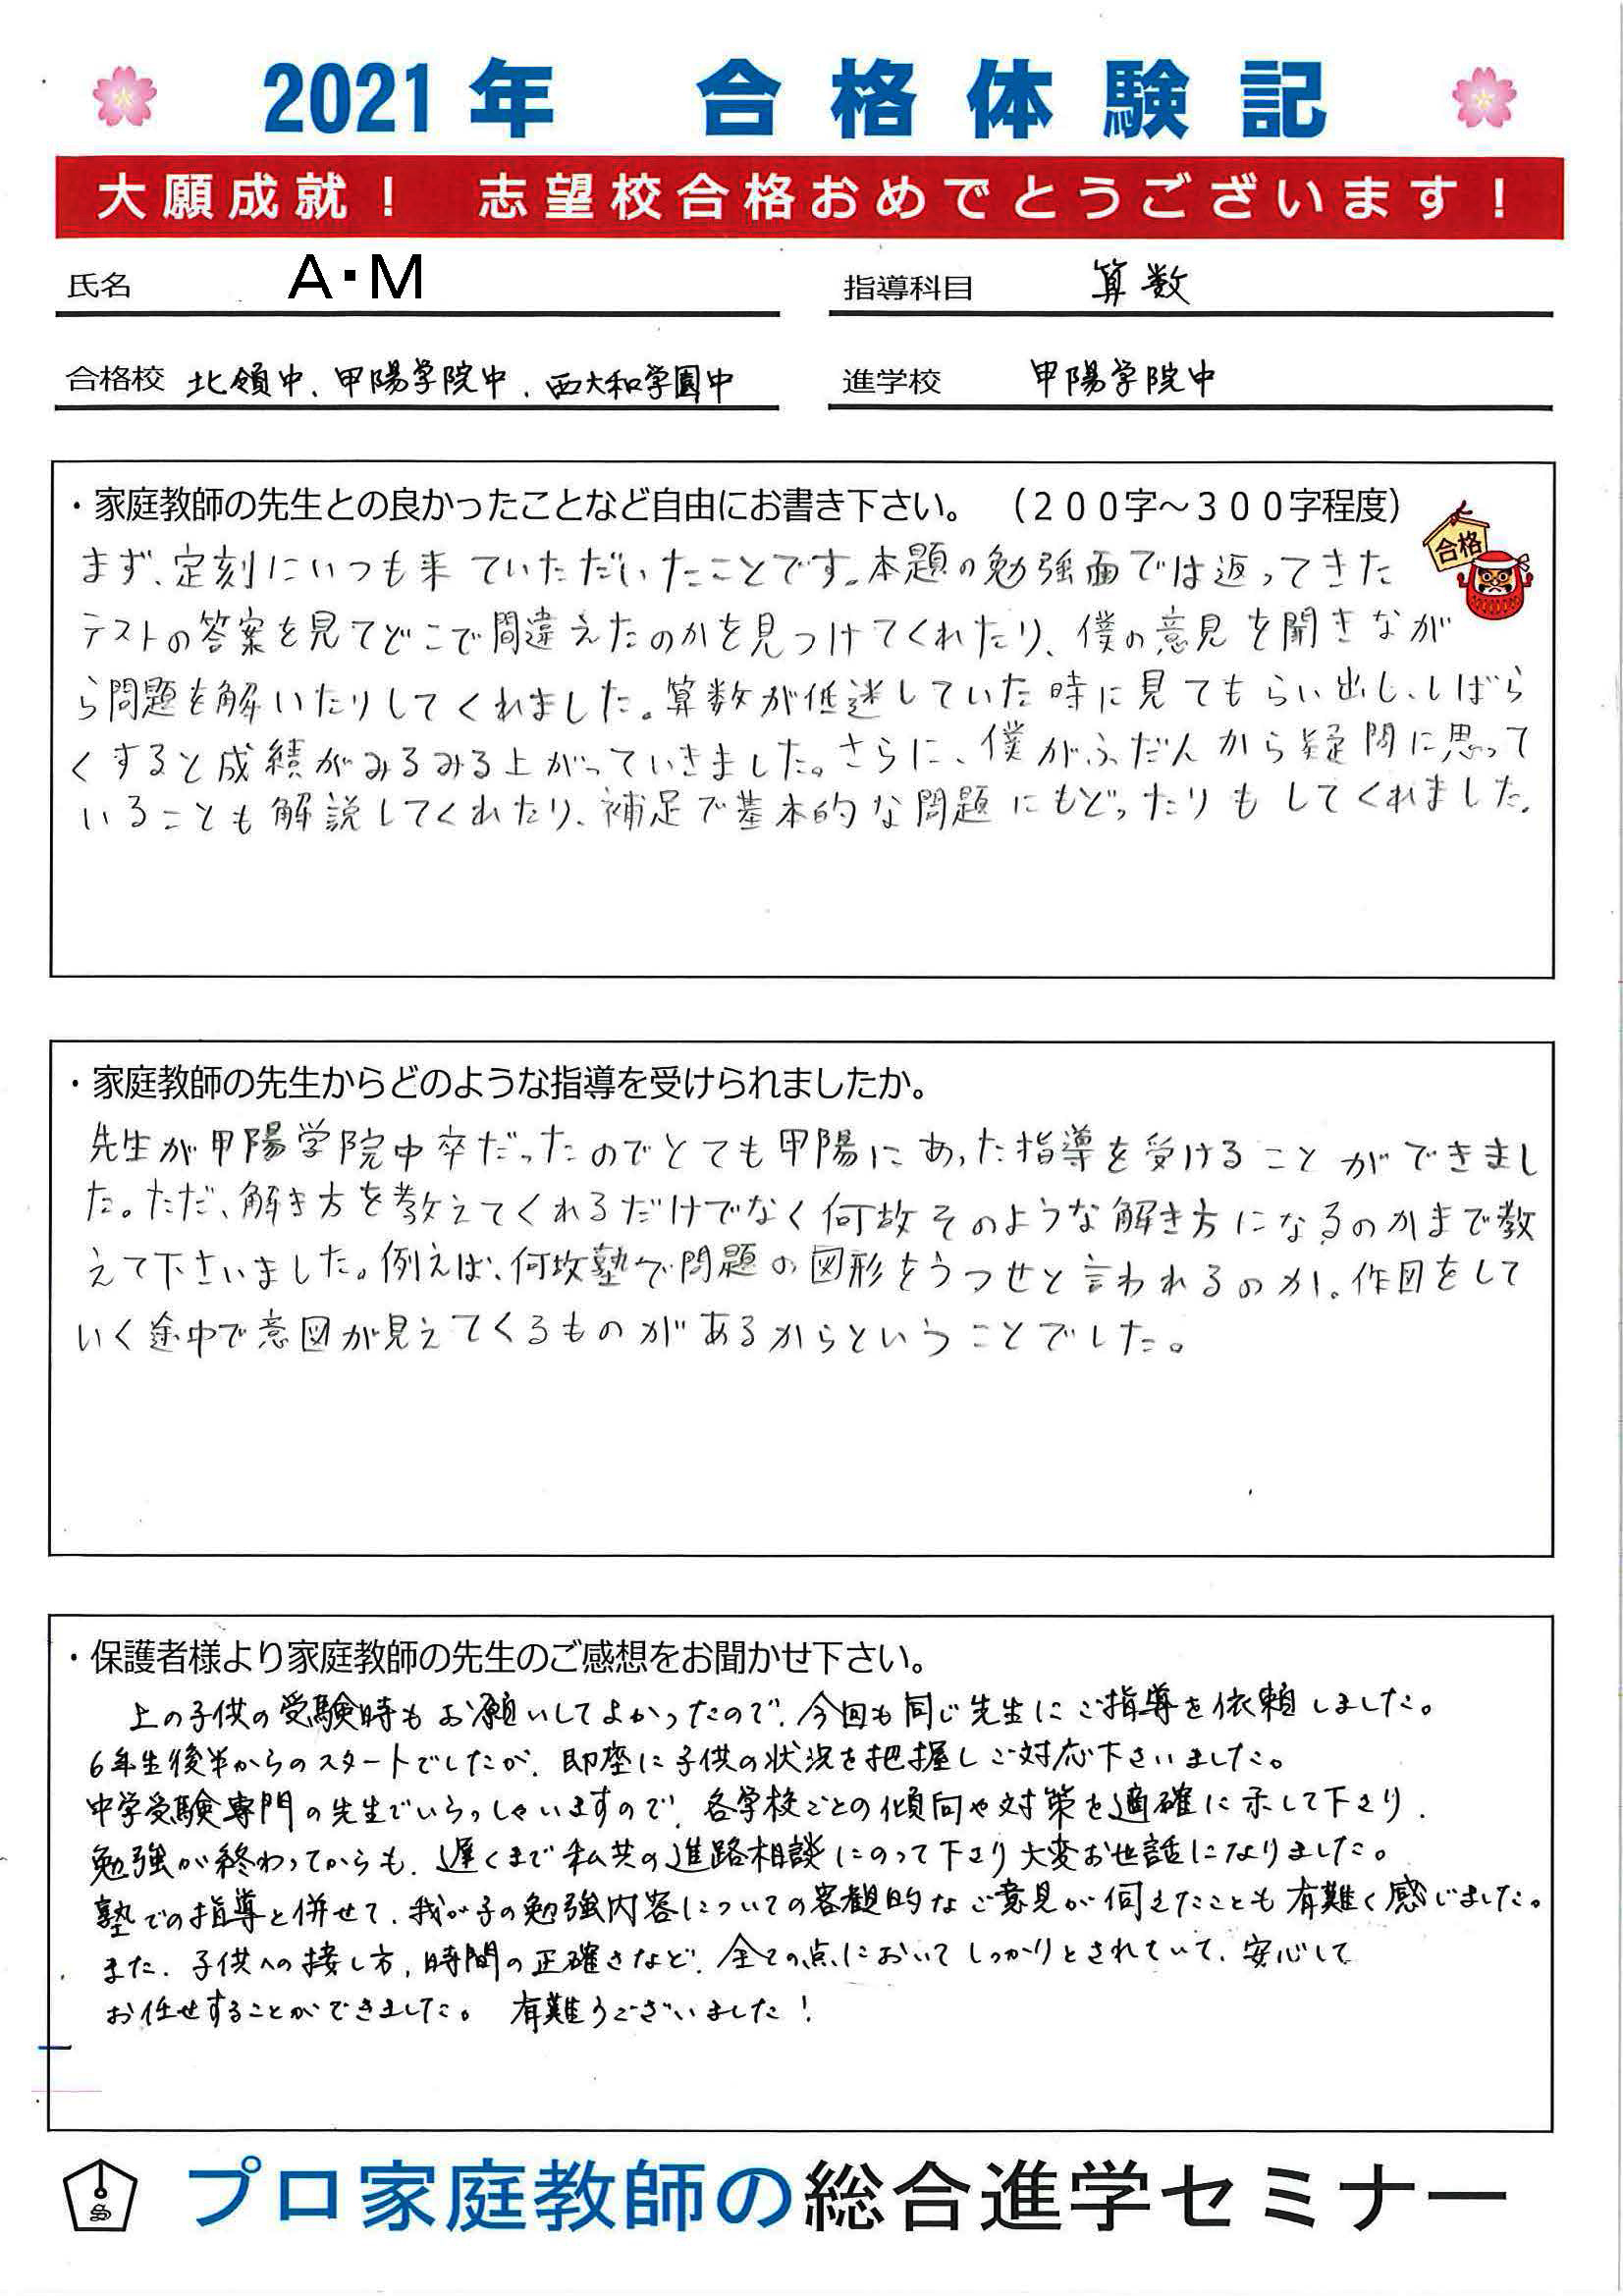 2021年　合格体験記
大願成就！　志望校合格おめでとうございます！
氏名　A・M　指導科目　算数
合格校　北嶺中、甲陽学院中、西大和学園中　進学校　甲陽学院中
・家庭教師の先生との良かったことなど自由にお書き下さい。　（２００字～３００字程度）
合格
まず、定刻にいつも来ていただいたことです。本題の勉強面では返ってきた
テストの答案を見てどこで間違えたのかを見つけてくれたり、僕の意見を聞きなが
ら問題を解いたりしてくれました。算数が低迷していた時に見てもらい出し、しばら
くすると成績がみるみる上がっていきました。さらに、僕がふだんから疑問に思って
いることも解説してくれたり、補足で基本的な問題にもどったりもしてくれました。
・家庭教師の先生からどのような指導を受けられましたか。
先生が甲陽学院中卒だったのでとても甲陽にあった指導を受けることができまし
た。ただ、解き方を教えてくれるだけでなく何故そのような解き方になるのかまで教
えて下さいました。例えば、何故塾で問題の図形をうつせと言われるのか。作図をして
いく途中で意図が見えてくるものがあるからということでした。
・保護者様より家庭教師の先生のご感想をお聞かせ下さい。
上の子供の受験時もお願いしてよかったので、今回も同じ先生にご指導を依頼しました。
6年生後半からのスタートでしたが、即座に子供の状況を把握しご対応下さいました。
中学受験専門の先生でいらっしゃいますので、各学校ごとの傾向や対策を適確に示して下さり、
勉強が終わってからも、遅くまで私共の進路相談にのって下さり大変お世話になりました。
塾での指導と併せて、我が子の勉強内容についての客観的なご意見が伺えたことも有難く感じました。
また、子供への接し方、時間の正確さなど、全ての点においてしっかりとされていて、安心して
お任せすることができました。　有難うございました！
プロ家庭教師の総合進学セミナー